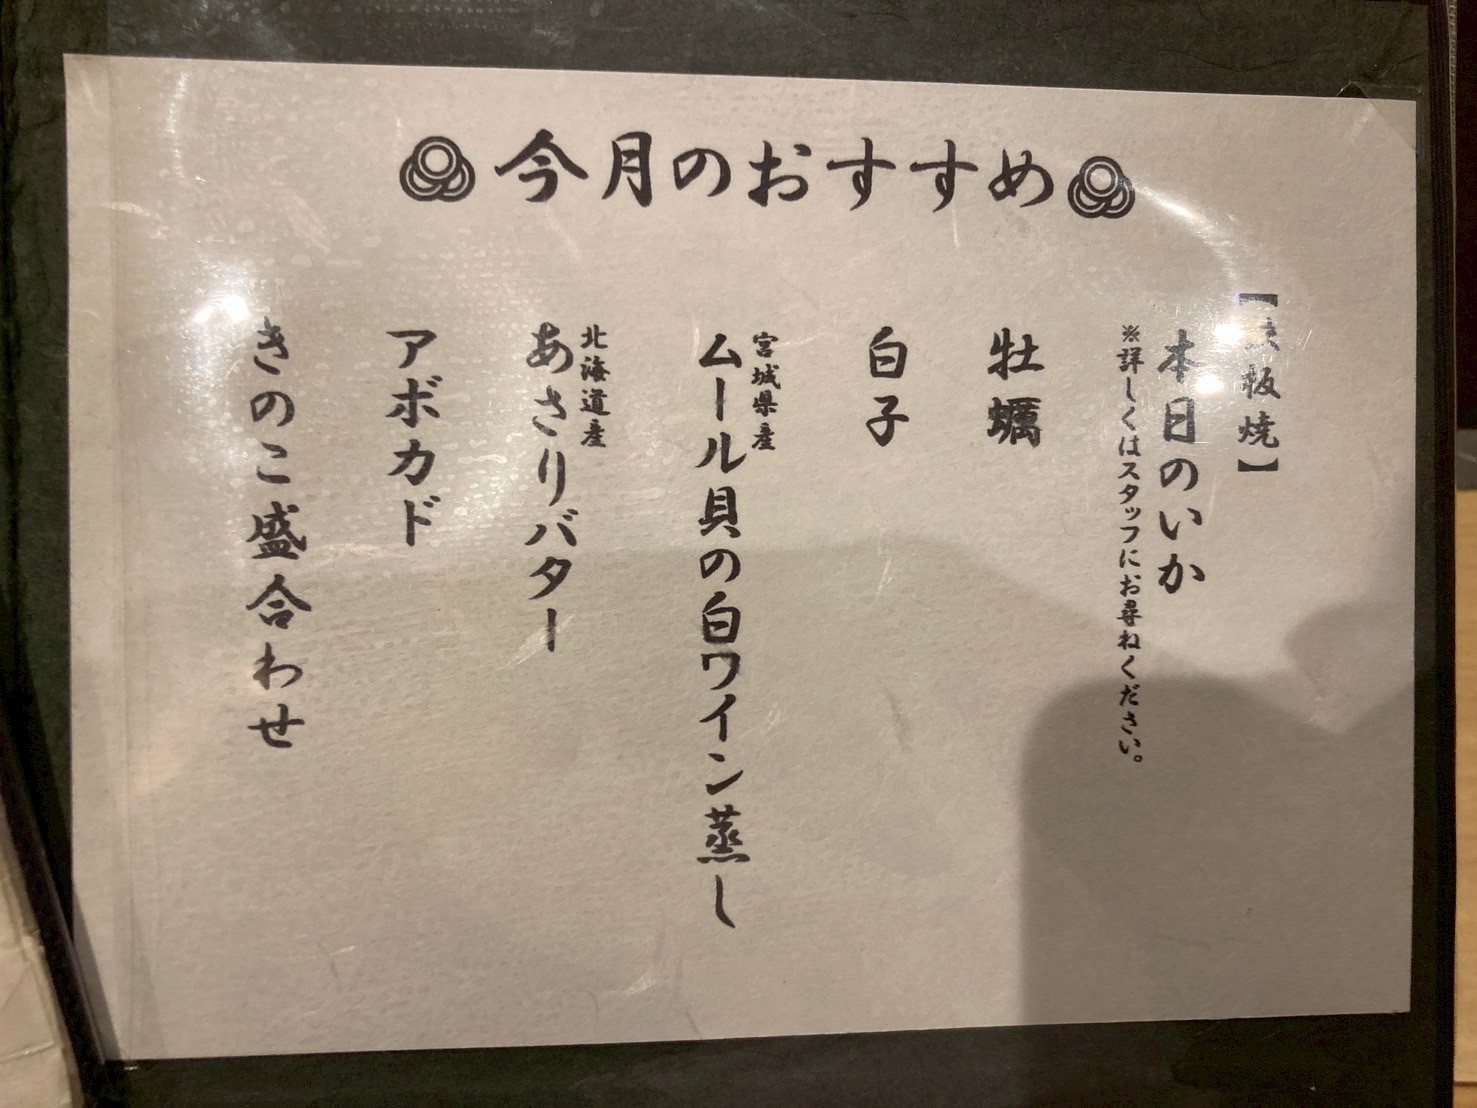 今月のおすすめ
【鉄板焼】
本日のいか
※詳しくはスタッフにお尋ねください。
牡蠣
白子
宮城県産
ムール貝の白ワイン蒸し
北海道産
あさりバター
アボカド
きのこ盛合わせ